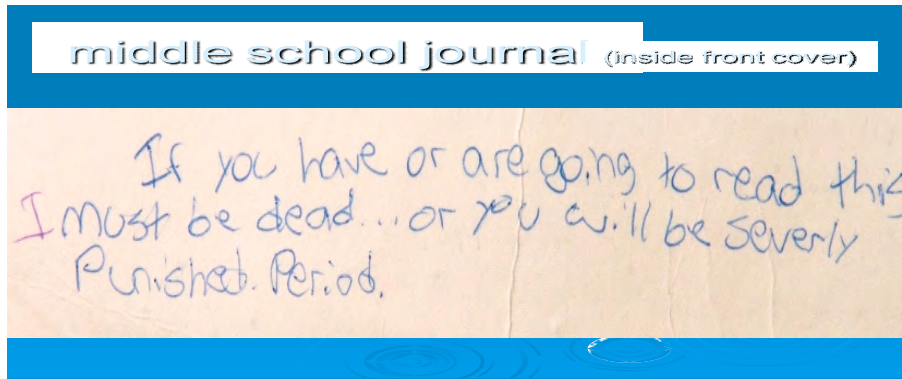 middle school journal (inside front cover)
If you have or are going to read this
I must be dead... or you will be severly
Punished. Period.